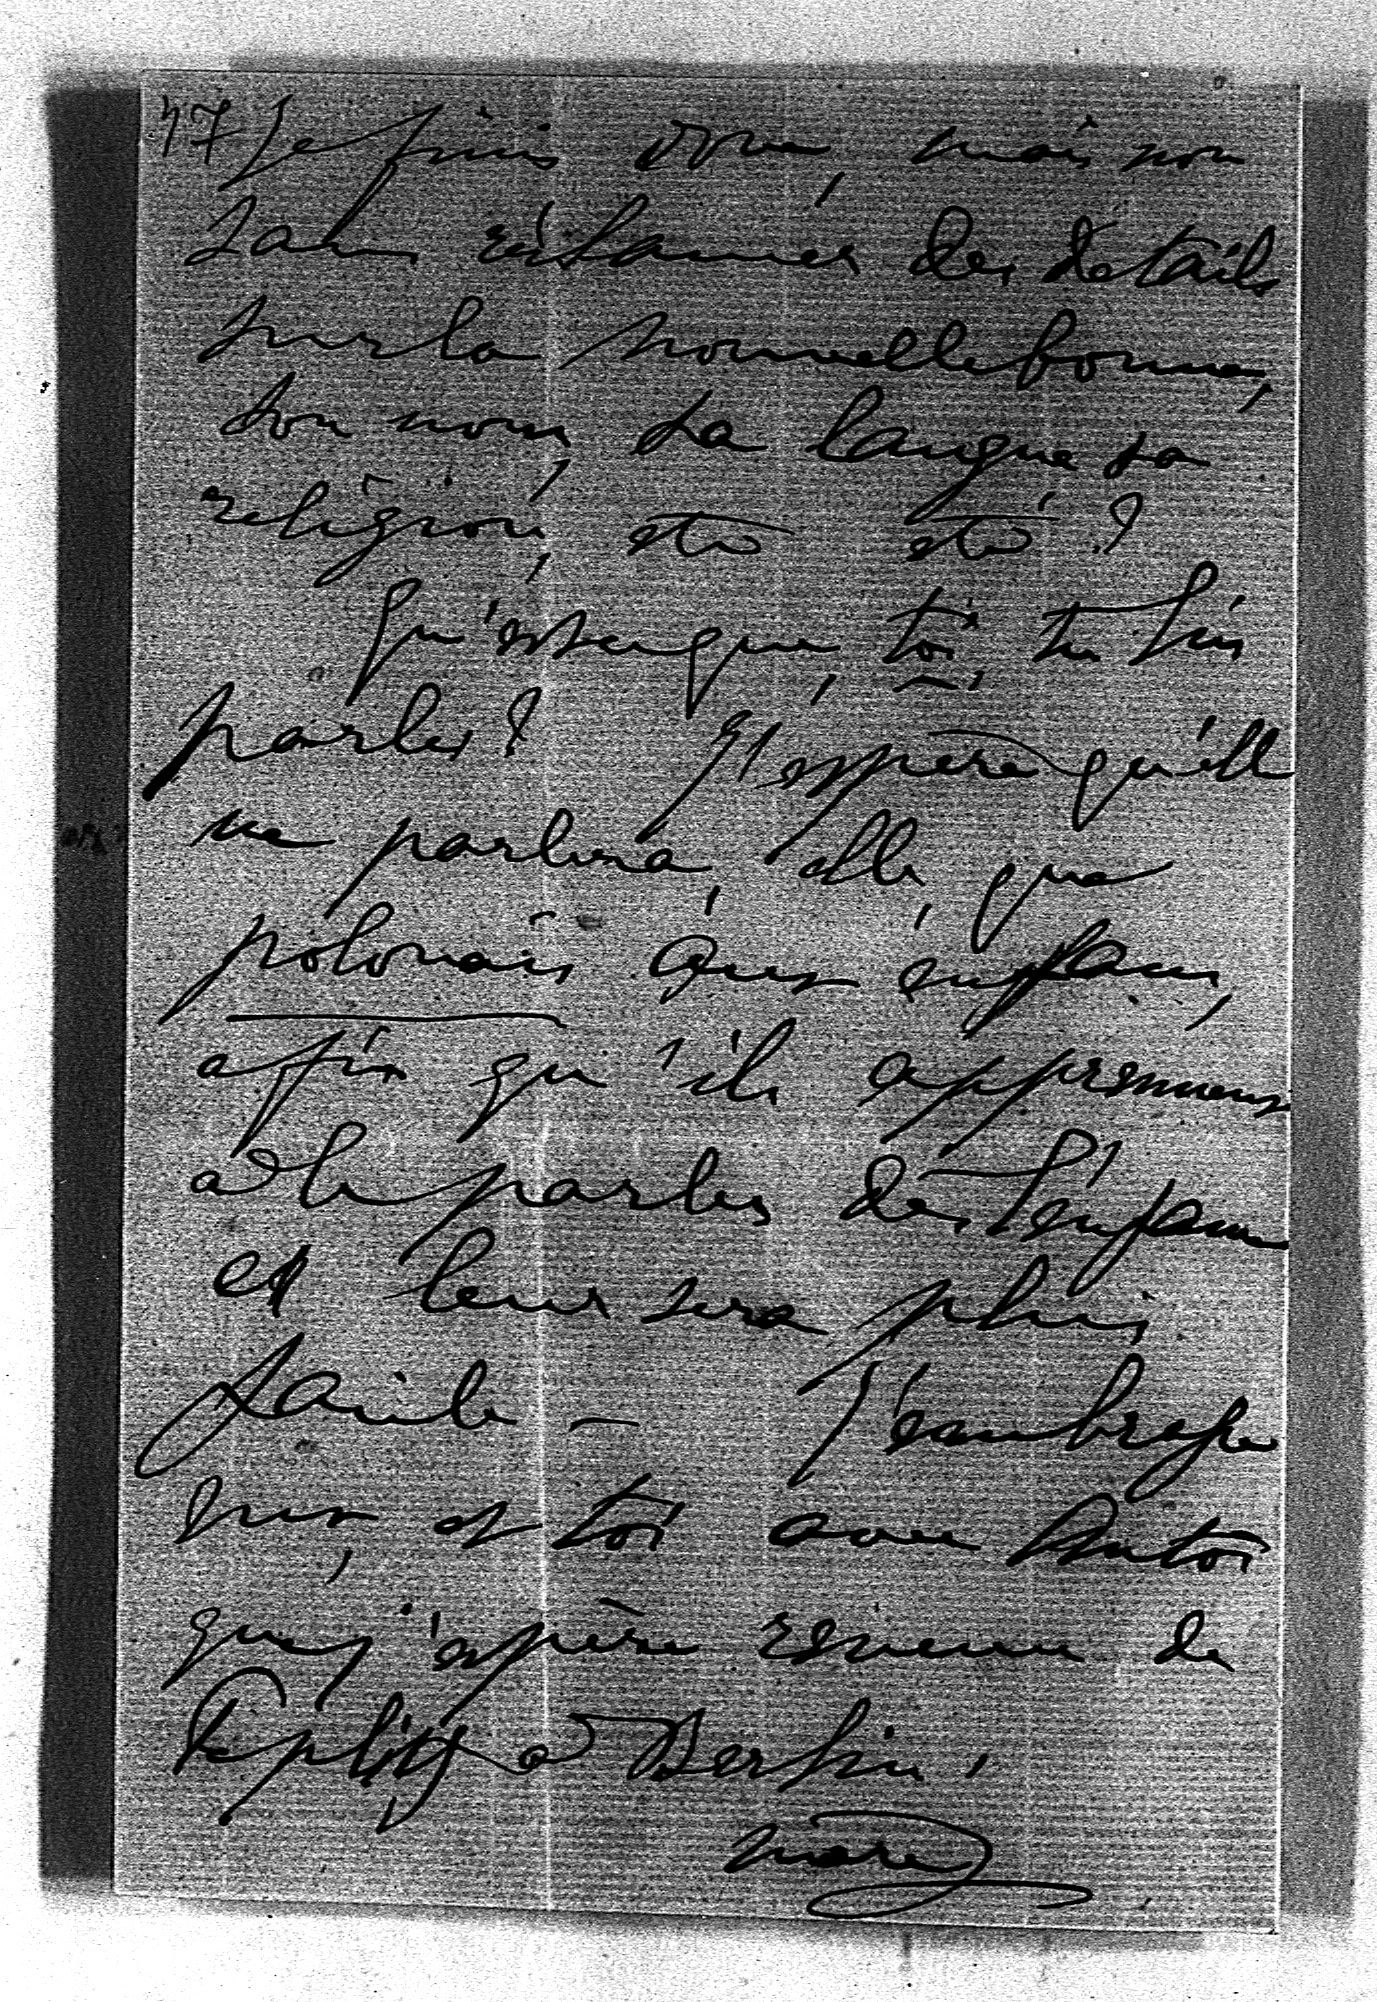 47 Je finis donc, mais non
sans réclamer des détails
sur la nouvelle bonne,
son nom, sa langue sa
religion, etc etc ?
Qu'est ce que, toi, tu lui
parles ? J'espère qu'elle
ne parlera, elle, que
polonais aux enfans,
afin qu'ils apprennent
à le parler dès l'enfance
et leur sera plus
facile – J'embrasse
eux, et toi avec Antoi
que j'espère revenu de
Teplitz à Berlin.
mère